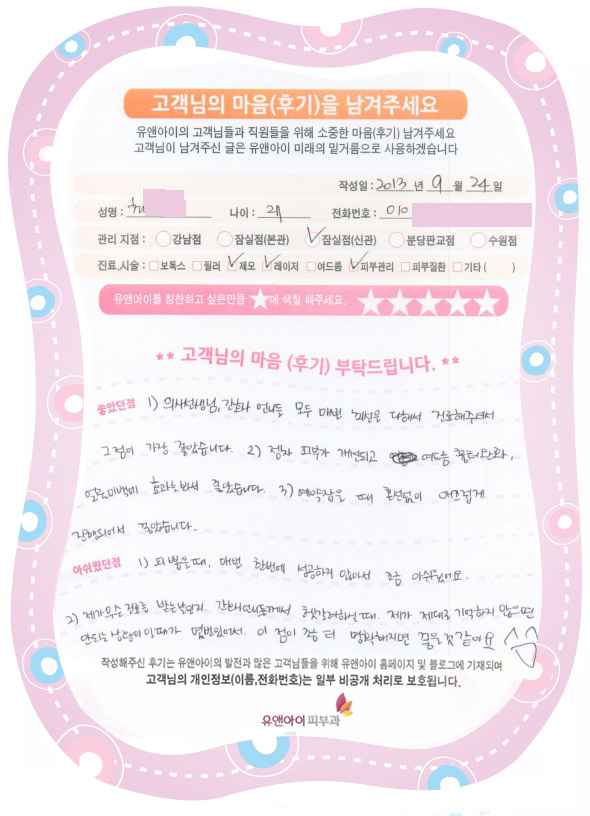 고객님의 마음(후기)을 남겨주세요
유앤아이의 고객님들과 직원들을 위해 소중한 마음(후기) 남겨주세요
고객님이 남겨주신 글은 유앤아이 미래의 밑거름으로 사용하겠습니다
작성일 : 2013 년 9 월 24 일
성명 : 나이 : 전화번호 : 010
관리 지점 : 강남점 잠실점(본관) 잠실점(신관) 분당판교점 수원점
진료,시술 : 보톡스 필러 제모 레이저 여드름 피부관리 피부질환 기타 ( )
유앤아이를 칭찬하고 싶은만큼 ★에 색칠 해주세요. ★★★★★
** 고객님의 마음 (후기) 부탁드립니다. **
좋았던점 1) 의사선생님, 간호사 언니들 모두 매번 최선을 다해서 진료해주셔서
그점이 가장 좋았습니다. 2) 점차 피부가 개선되고 여드름 흉터완화,
얼룩미백에 효과를봐서 좋았습니다. 3) 예약잡을 때 혼선없이 매끄럽게
진행되어서 좋았습니다.
아쉬웠던점 1) 피 뽑을때, 매번 한번에 성공하지 않아서 조금 아쉬웠어요.
2) 제가 무슨 진료를 받는날인지, 헷갈려하실때. 제가 제대로 기억하지 않으면
안되는 이때가 몇번있어서. 이 점이 좀 더 명확해지면 좋을것 같아요
작성해주신 후기는 유앤아이의 발전과 많은 고객님들을 위해 유앤아이 홈페이지 및 블로그에 기재되며
고객님의 개인정보(이름,전화번호)는 일부 비공개 처리로 보호됩니다.
유앤아이피부과